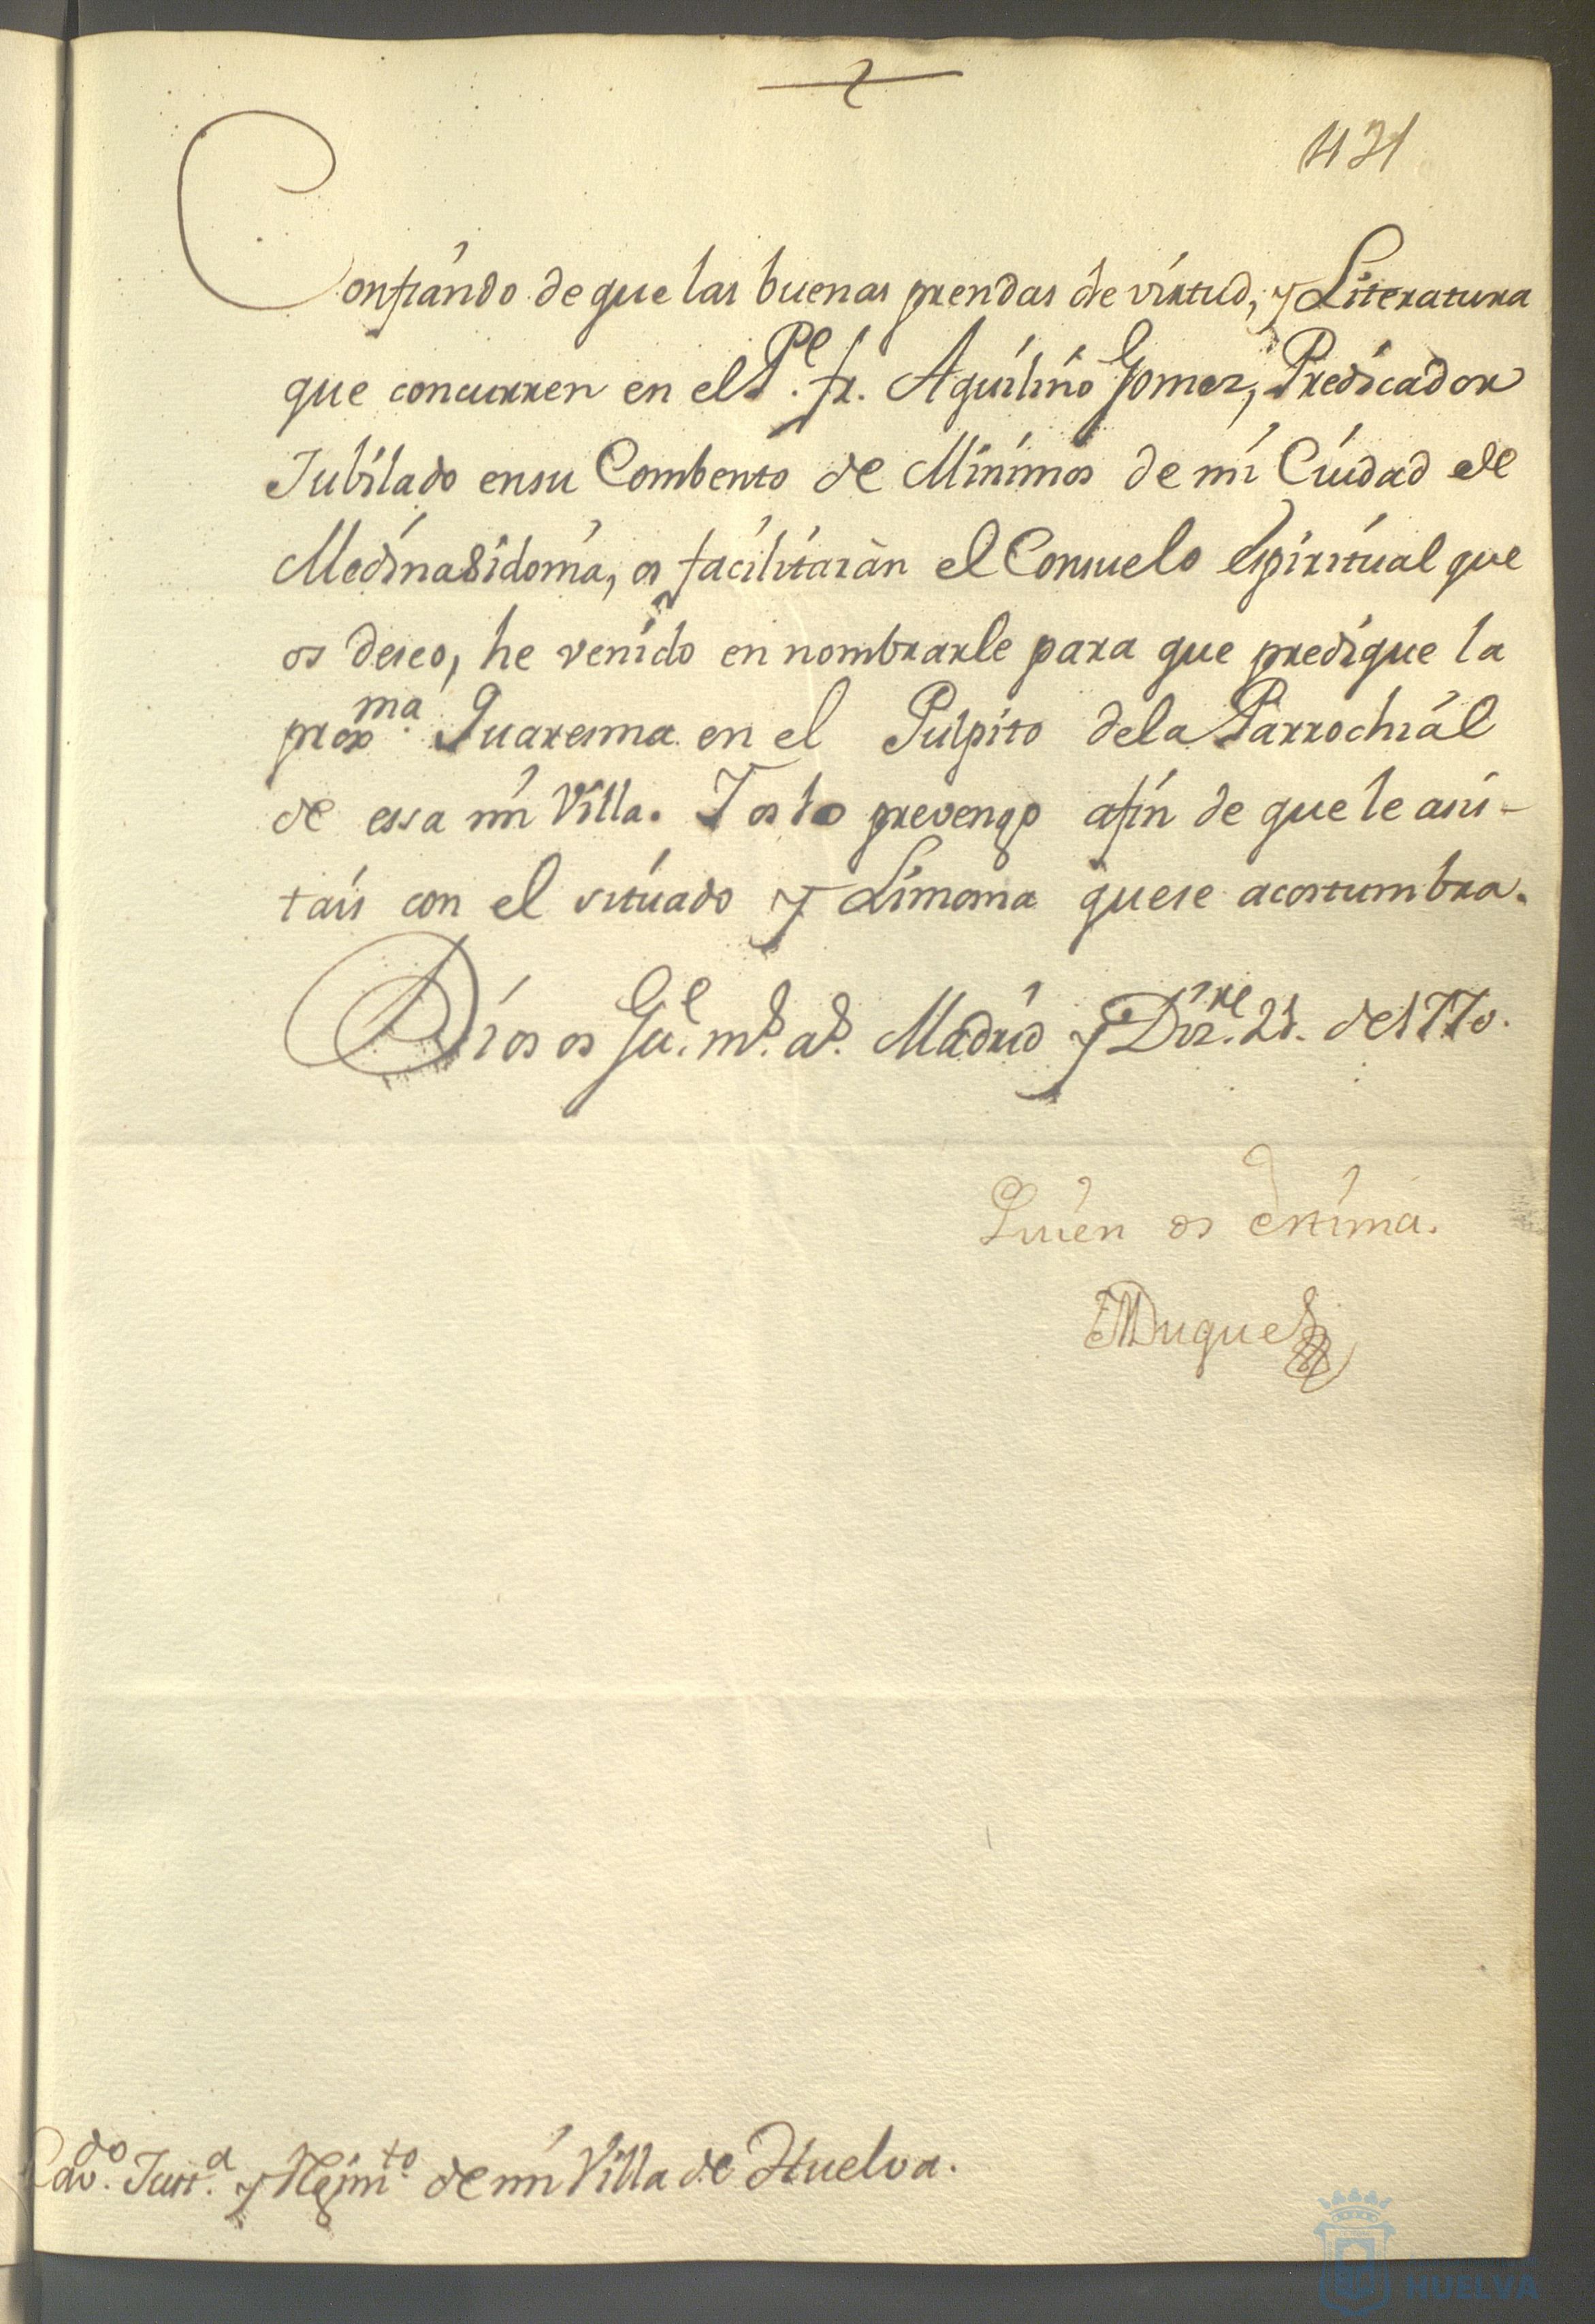 431
Confiando de que las buenas prendas de virtud, y Literatura
que concurren en el Pe. fr. Aquilino Gomez, Predicador
Jubilado ensu Combento de Minimos de mi Ciudad de
Medinasidonia, os facilitaràn el Consuelo espiritual que
os deseo, he venido en nombrarle para que predique la
proxma. Quaresma en el Pulpito dela Parrochiàl
de essa mi Villa. Y os lo prevengo afin de que le asis-
tais con el situado y Limosna quese acostumbra.
Dios os Gue. ms. as. Madrid y Dizre. 21. de 1770.
Quien os estima.
El Duque
Cavdo. Justa. y Regimto. de mi Villa de Huelva.
HUELVA